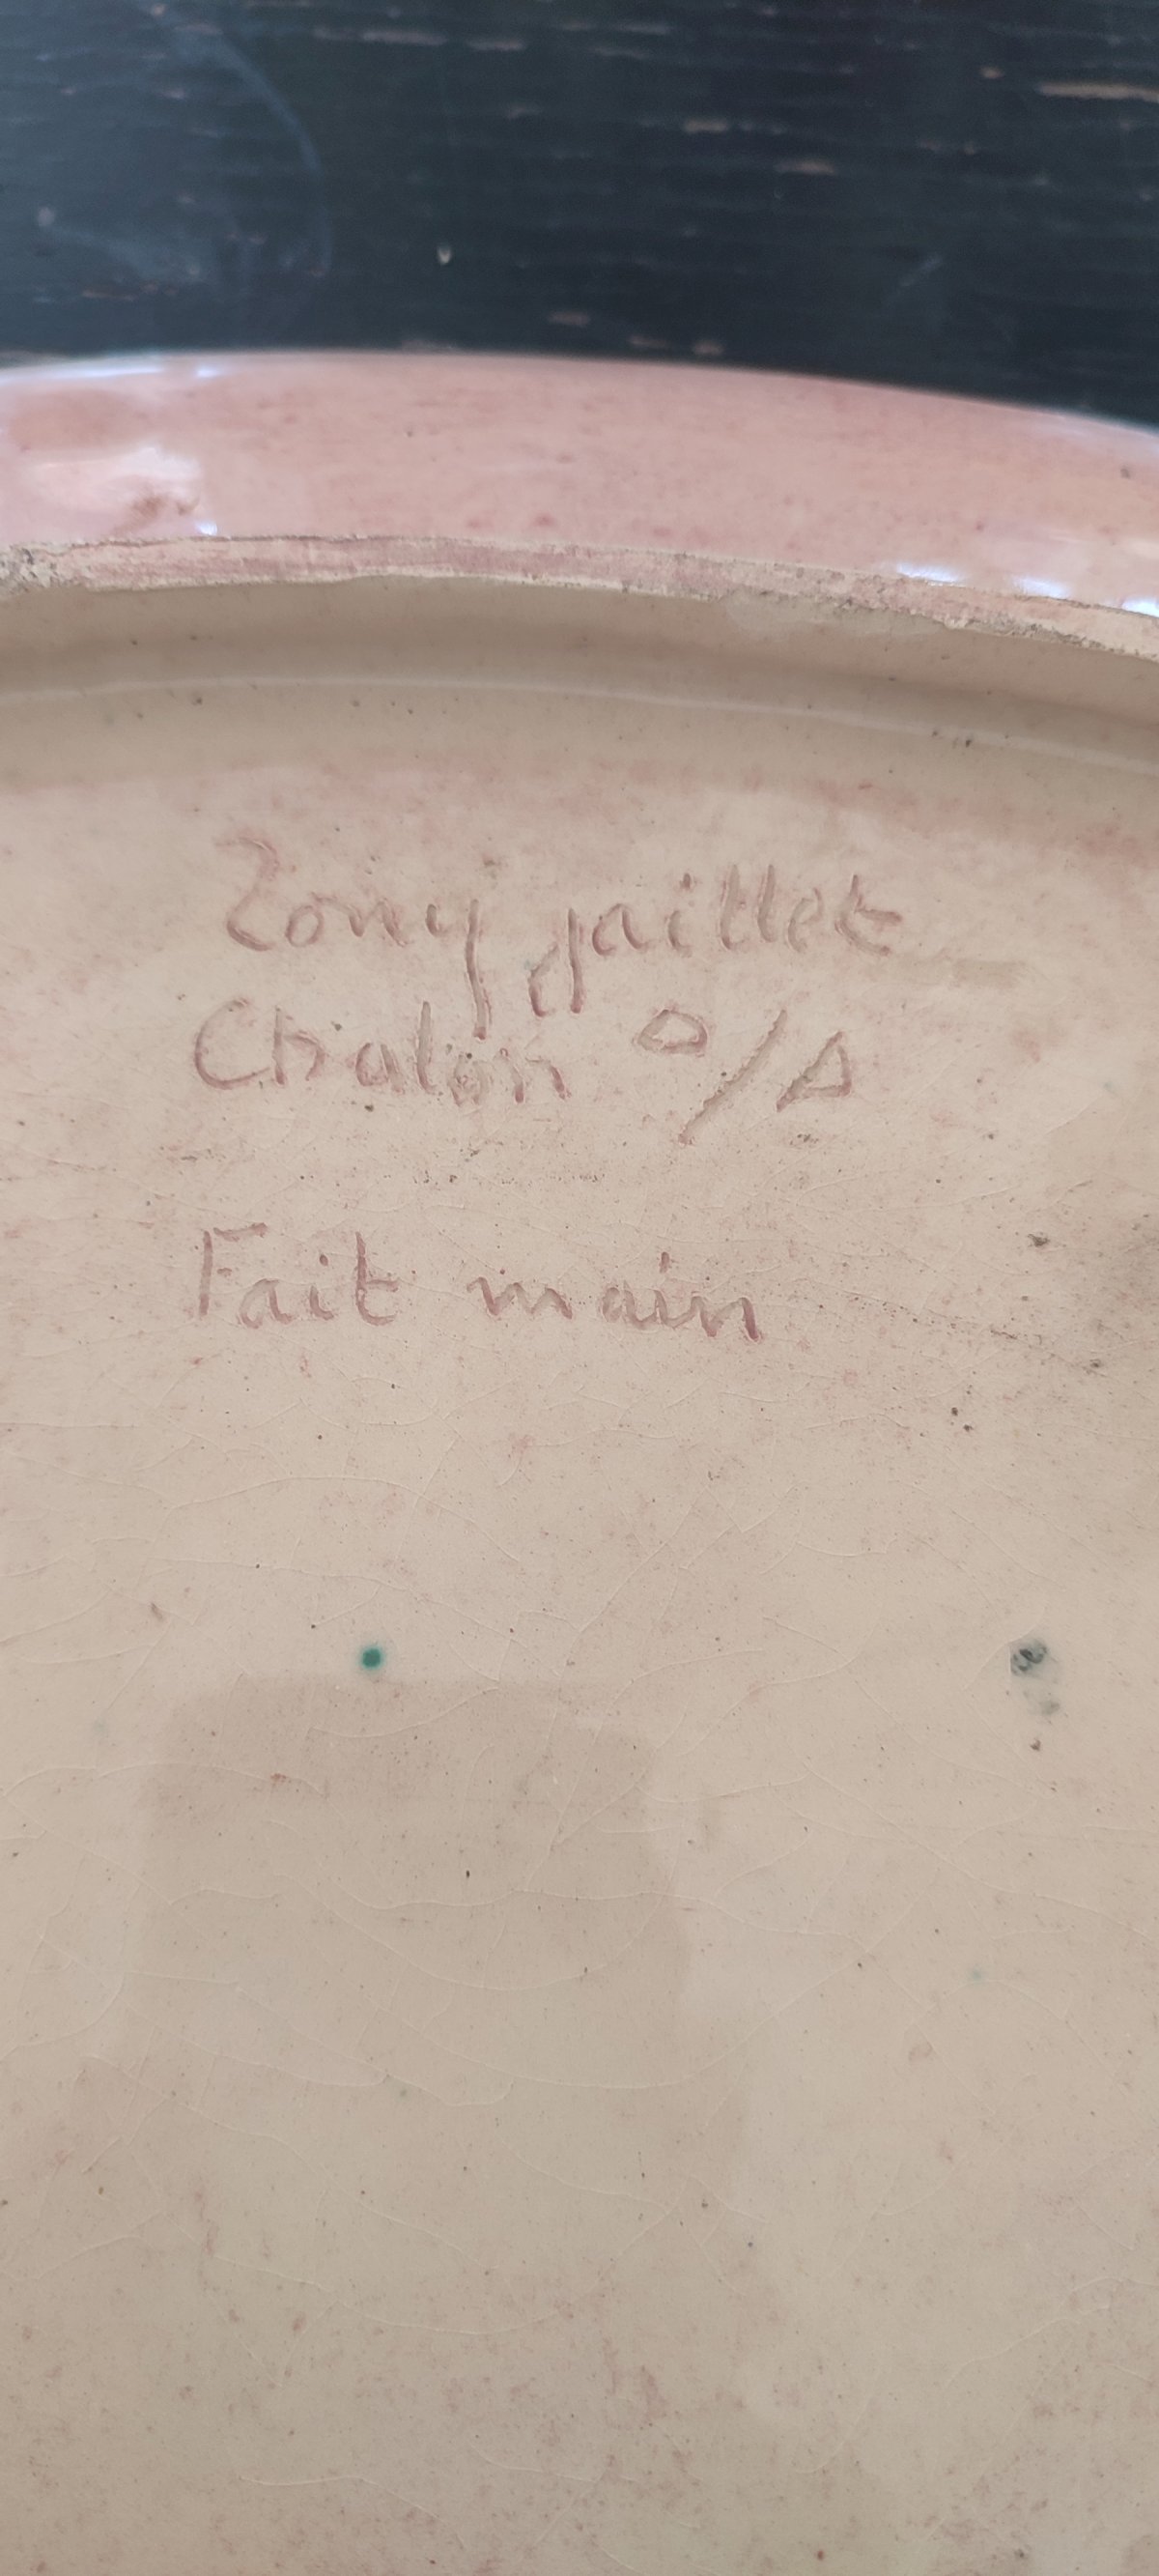 Zony jaillet
Chalon s/s
Fait main